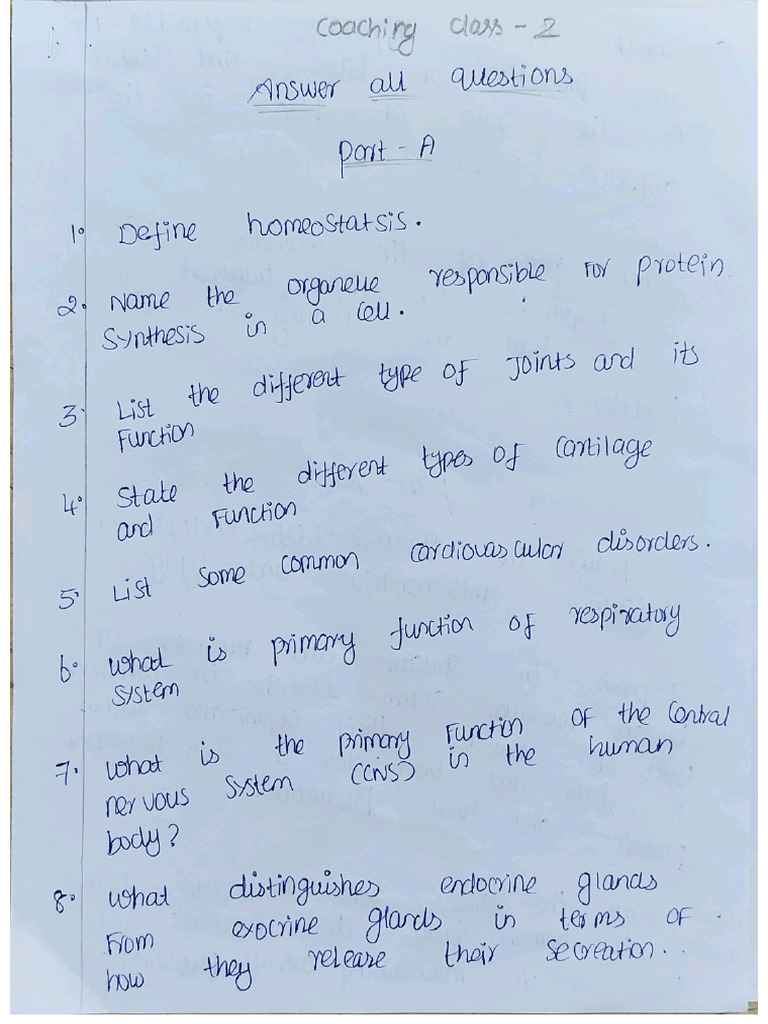 Coaching class - 2
Answer all questions
Part - A
1. Define homeostatsis.
2. Name the organelle responsible for protein
synthesis in a cell.
3. List the different type of joints and its
Function
4. State the different types of cartilage
and Function
5. List some common cardiovascular disorders.
6. What is primary function of respiratory
system
7. What is the primary Function of the Central
nervous system (CNS) in the human
body?
8. What distinguishes endocrine glands
From exocrine glands in terms of
how they release their secreation.